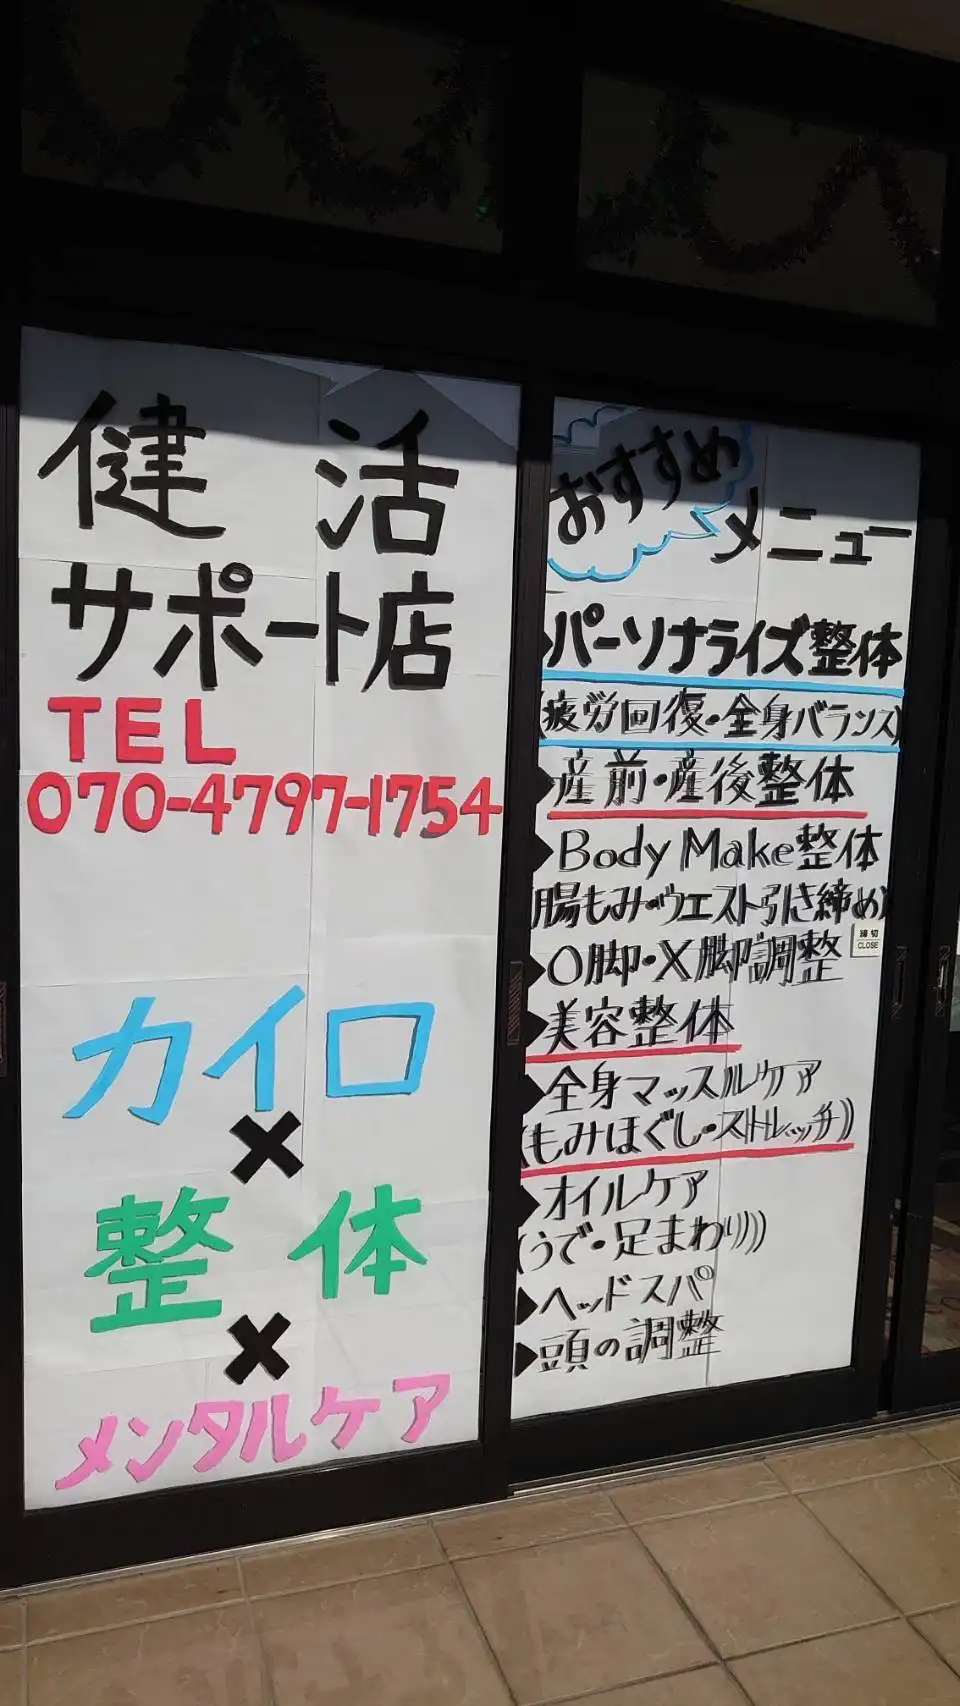 健活
サポート店
TEL
070-4797-1754
カイロ
×
整体
×
メンタルケア
おすすめ
メニュー
パーソナライズ整体
(疲労回復・全身バランス)
産前・産後整体
Body Make整体
(腸もみ・ウエスト引き締め)
O脚・X脚調整
美容整体
全身マッスルケア
(もみほぐし・ストレッチ)
オイルケア
(うで・足まわり)
ヘッドスパ
頭の調整
締切
CLOSE